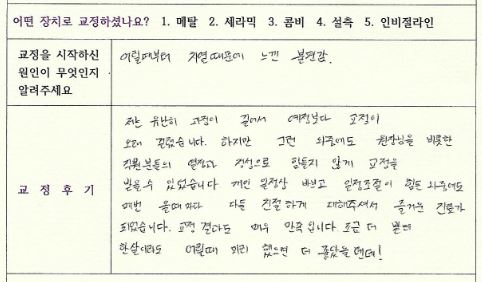 어떤 장치로 교정하셨나요? 1. 메탈 2. 세라믹 3. 콤비 4. 설측 5. 인비절라인
교정을 시작하신
원인이 무엇인지
알려주세요
어릴때부터 치열때문에 느낀 불편감.
교 정 후 기
저는 유난히 과정이 길어서 예정보다 교정이
오래 걸렸습니다. 하지만 그런 와중에도 원장님을 비롯한
직원분들의 열정과 정성으로 힘들지 않게 교정을
받을 수 있었습니다 개인 일정상 바쁘고 일정조절이 힘든 와중에도
매번 올때마다 다들 친절하게 대해주셔서 즐거운 진료가
되었습니다. 교정 결과도 매우 만족입니다. 조금 더
한살이라도 어릴때 미리 했으면 더 좋았을텐데!